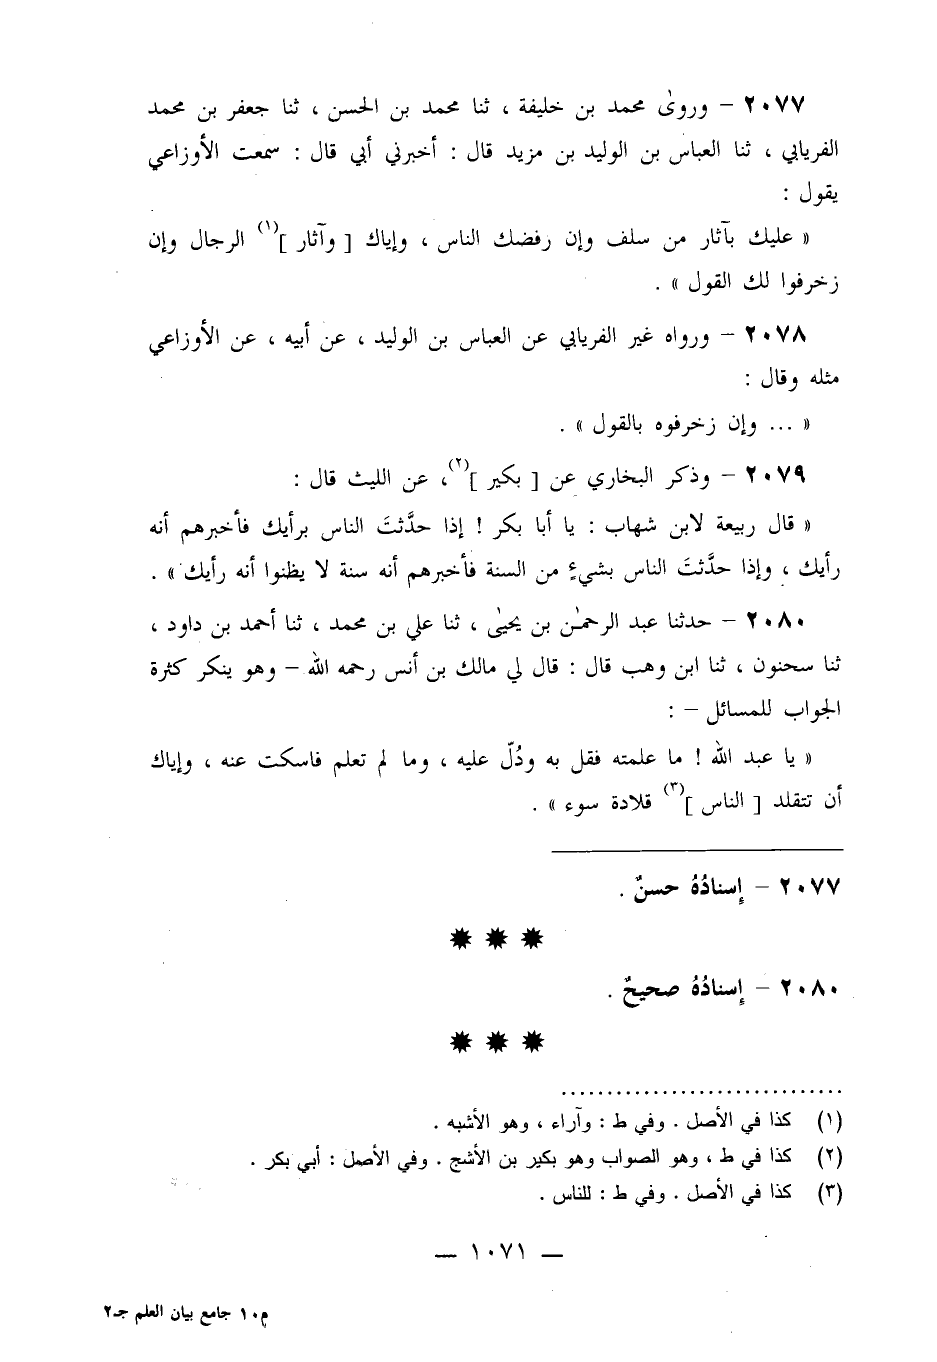 ٢٠٧٧ – وروىٰ محمد بن خليفة ، ثنا محمد بن الحسن ، ثنا جعفر بن محمد
الفريابي ، ثنا العباس بن الوليد بن مزيد قال : أخبرني أبي قال : سمعت الأوزاعي
يقول :
« عليك بآثار من سلف وإن رفضك الناس ، وإياك [ وآثار ](١) الرجال وإن
زخرفوا لك القول » .
٢٠٧٨ – ورواه غير الفريابي عن العباس بن الوليد ، عن أبيه ، عن الأوزاعي
مثله وقال :
« ... وإن زخرفوه بالقول » .
٢٠٧٩ – وذكر البخاري عن [ بكير ](٢)، عن الليث قال :
« قال ربيعة لابن شهاب : يا أبا بكر ! إذا حدَّثتَ الناس برأيك فأخبرهم أنه
رأيك ، وإذا حدَّثتَ الناس بشيءٍ من السنة فأخبرهم أنه سنة لا يظنوا أنه رأيك » .
٢٠٨٠ – حدثنا عبد الرحمٰن بن يحيىٰ ، ثنا علي بن محمد ، ثنا أحمد بن داود ،
ثنا سحنون ، ثنا ابن وهب قال : قال لي مالك بن أنس رحمه الله – وهو ينكر كثرة
الجواب للمسائل – :
« يا عبد الله ! ما علمته فقل به ودُلّ عليه ، وما لم تعلم فاسكت عنه ، وإياك
أن تتقلد [ الناس ](٣) قلادة سوء » .
٢٠٧٧ – إسنادُهُ حسنٌ .
٢٠٨٠ – إسنادُهُ صحيحٌ .
(١) كذا في الأصل . وفي ط : وآراء ، وهو الأشبه .
(٢) كذا في ط ، وهو الصواب وهو بكير بن الأشج . وفي الأصل : أبي بكر .
(٣) كذا في الأصل . وفي ط : للناس .
— ١٠٧١ —
م١٠ جامع بيان العلم جـ٢